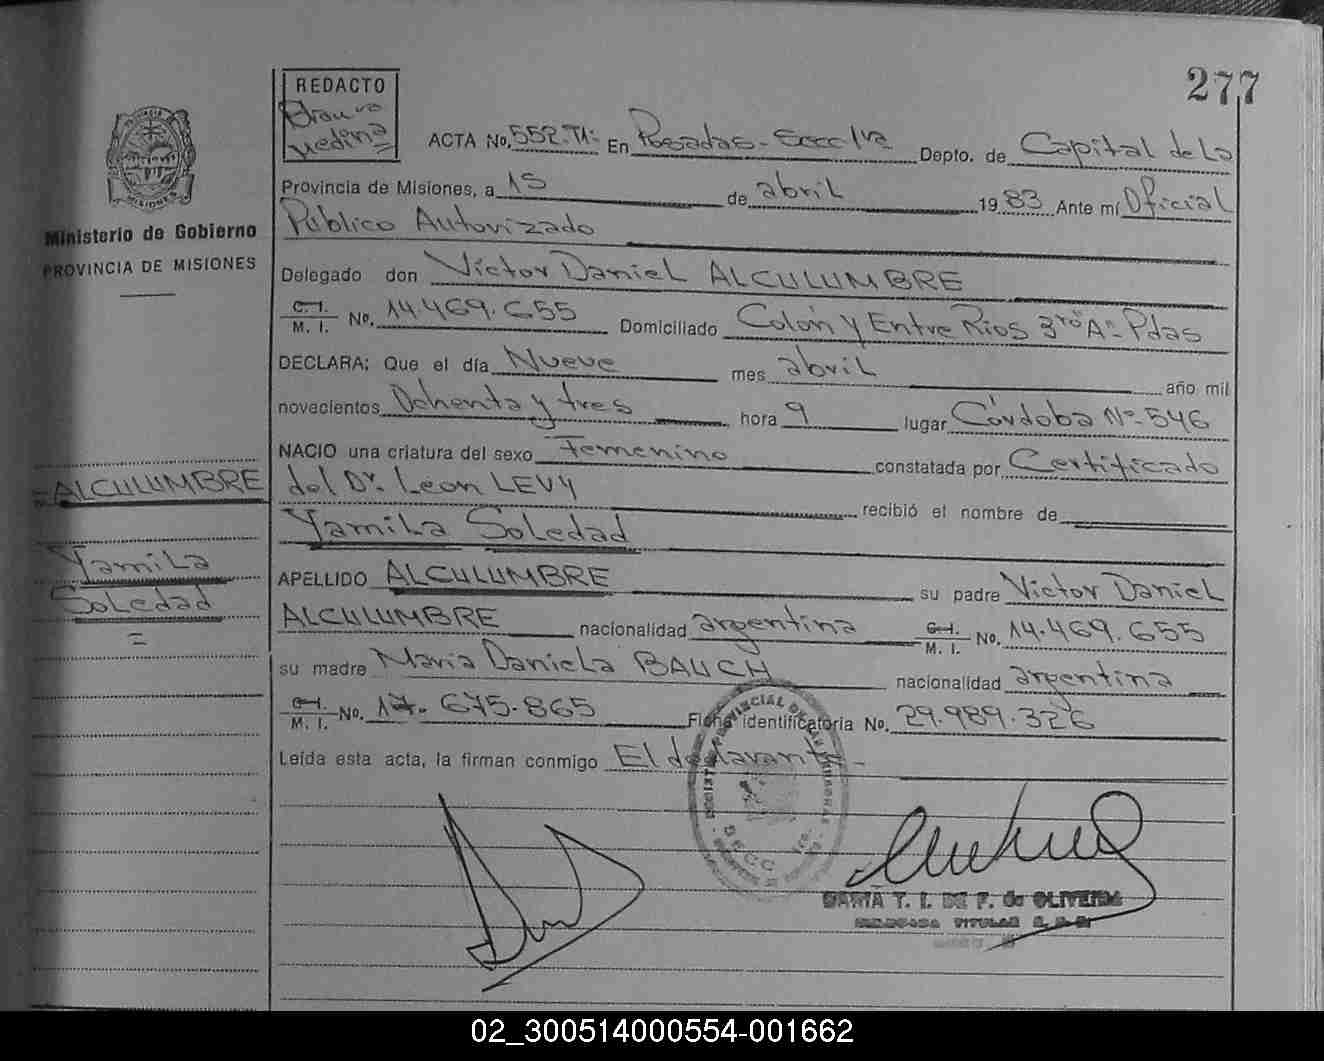 277
REDACTO
Medina
PROVINCIA DE MISIONES
Ministerio de Gobierno
PROVINCIA DE MISIONES
ACTA No. 552-TI- En Posadas- Secc 1ra Depto. de Capital de La
Provincia de Misiones, a 15 de abril 1983 Ante mí Oficial
Público Autorizado
Delegado don Víctor Daniel ALCULUMBRE
C. I. M. I. No. 14.469.655 Domiciliado Colón y Entre Ríos 3ro "A"- Pdas
DECLARA: Que el día Nueve mes abril año mil
novecientos Ochenta y tres hora 9 lugar Córdoba Nº-546
NACIO una criatura del sexo Femenino constatada por Certificado
del Dr. Leon LEVY recibió el nombre de
Yamila Soledad
APELLIDO ALCULUMBRE su padre Victor Daniel
ALCULUMBRE nacionalidad argentina C. I. M. I. No. 14.469.655
su madre María Daniela BAUCH nacionalidad argentina
C. I. M. I. No. 17.675.865 Ficha identificatoria No. 29.989.326
Leída esta acta, la firman conmigo El declarante-
=ALCULUMBRE
Yamila
Soledad
=
MARIA T. I. DE F. de OLIVEIRA
DELEGADA TITULAR
02_300514000554-001662